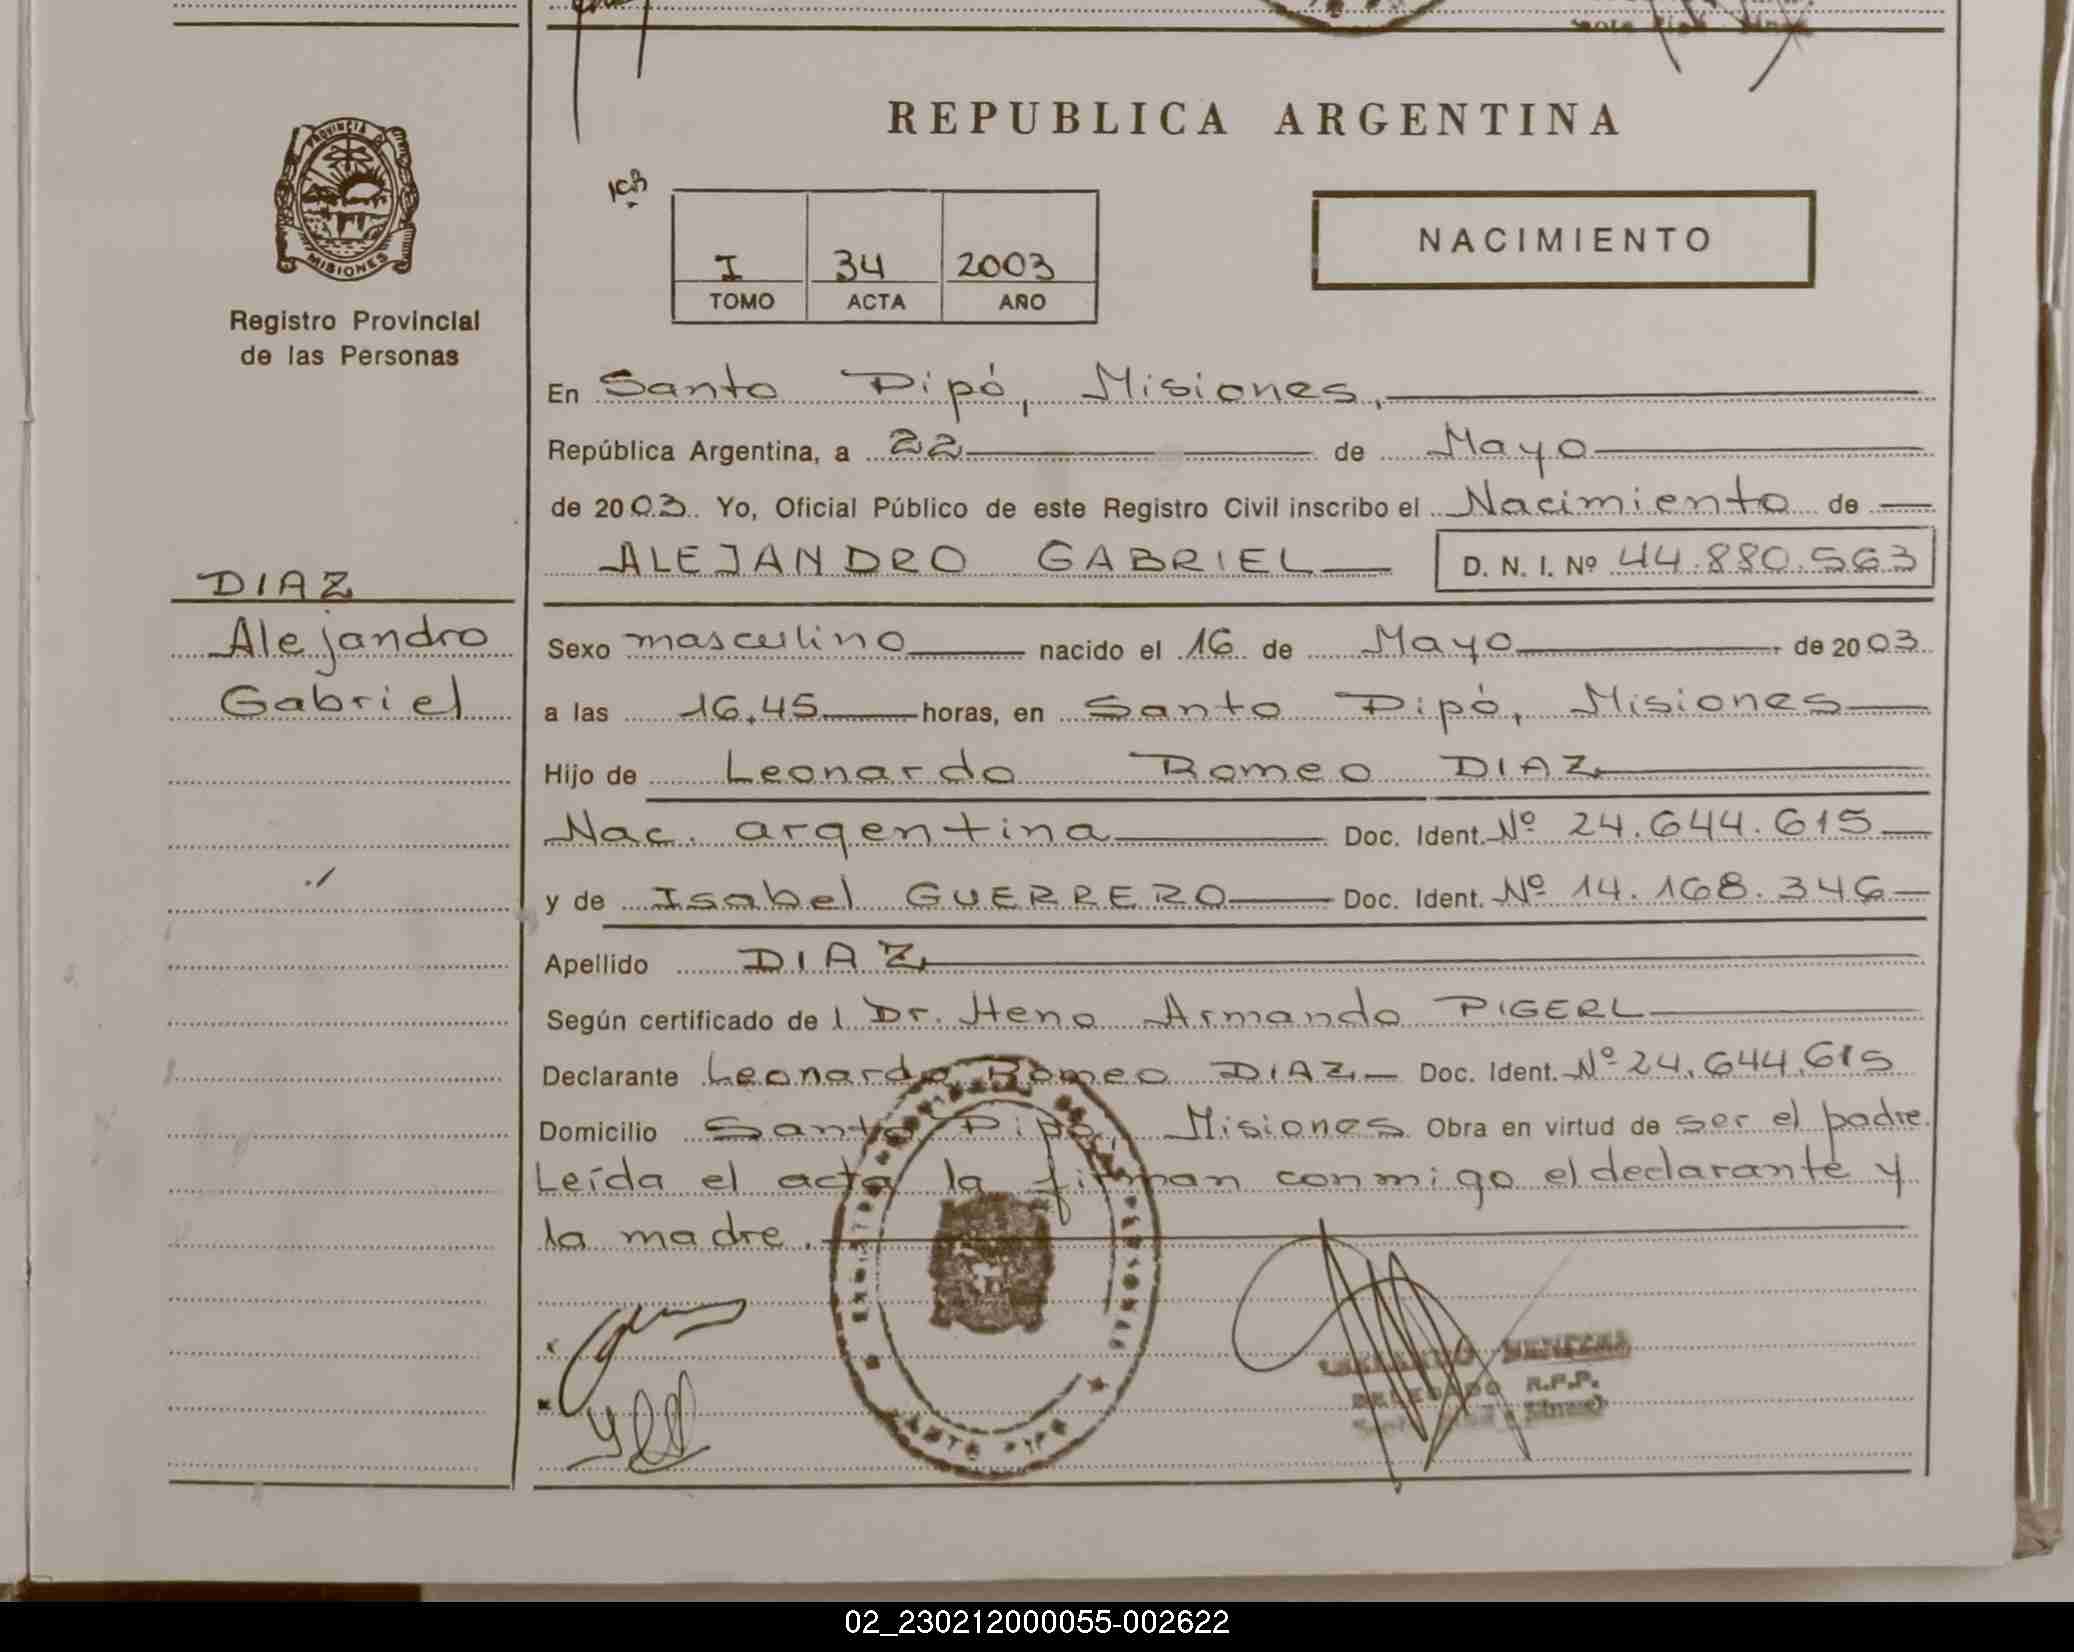 REPUBLICA ARGENTINA
PROVINCIA D
MISIONES
Registro Provincial
de las Personas
I 34 2003
TOMO ACTA AÑO
NACIMIENTO
En Santo Pipó, Misiones,
República Argentina, a 22 de Mayo
de 2003. Yo, Oficial Público de este Registro Civil inscribo el Nacimiento de
ALEJANDRO GABRIEL D. N. I. Nº 44.880.563
DIAZ
Alejandro
Gabriel
Sexo masculino nacido el 16 de Mayo de 2003
a las 16.45 horas, en Santo Pipó, Misiones
Hijo de Leonardo Romeo DIAZ
Nac. argentina Doc. Ident. Nº 24.644.615
y de Isabel GUERRERO Doc. Ident. Nº 14.168.346
Apellido DIAZ
Según certificado de l Dr. Heno Armando PIGERL
Declarante Leonardo Romeo DIAZ Doc. Ident. Nº 24.644.615
Domicilio Santo Pipó, Misiones Obra en virtud de ser el padre.
Leída el acta la firman conmigo el declarante y
la madre.
DELEGADO R.P.P.
SANTO PIPO
02_230212000055-002622